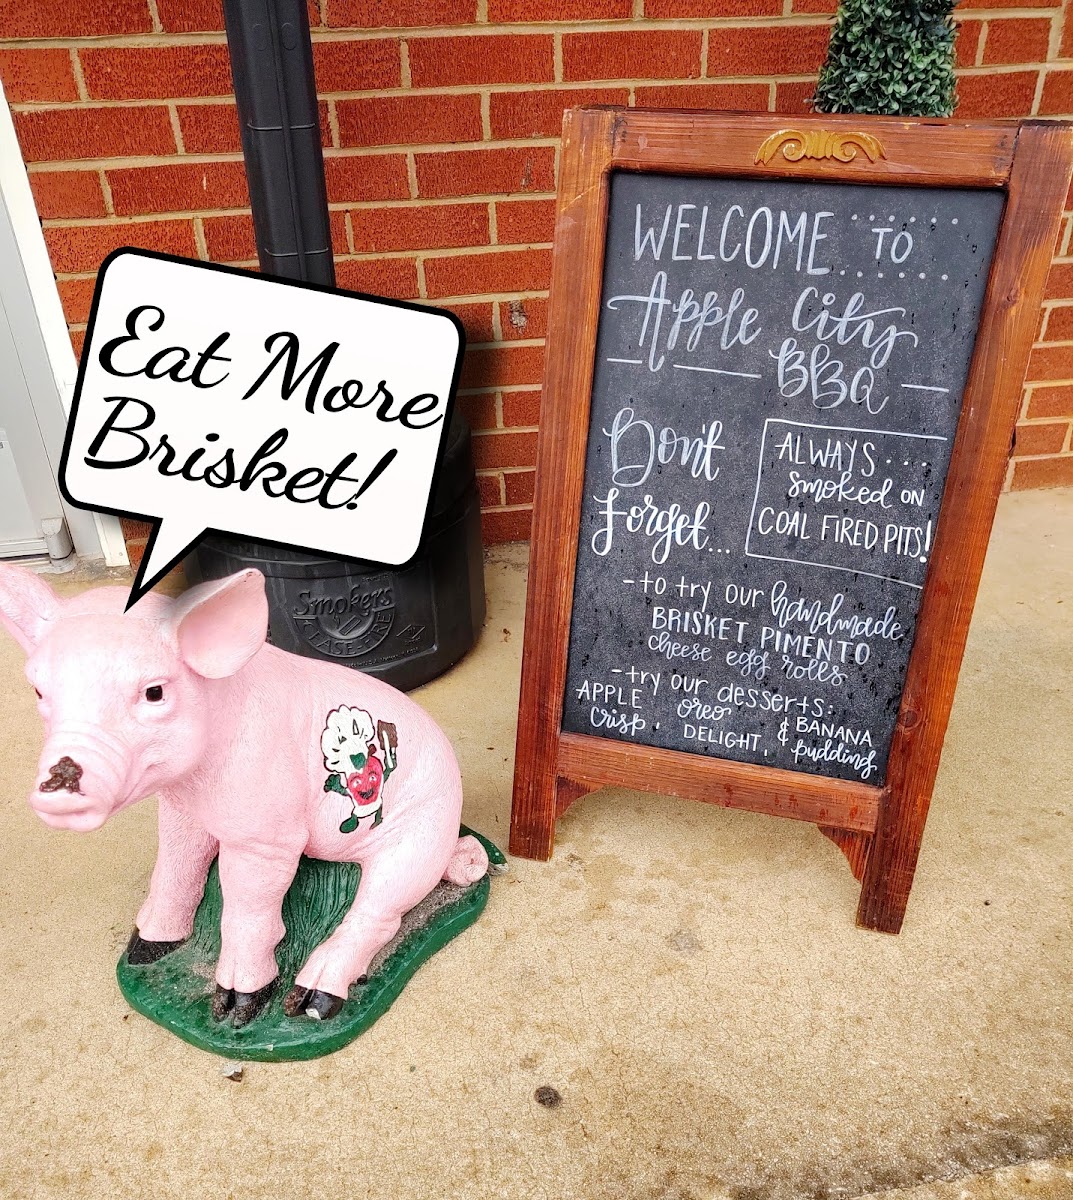 Eat More
Brisket!
Smokers
WELCOME TO
Apple City
BBQ
Don't
Forget...
ALWAYS...
smoked ON
COAL FIRED PITS!
-to try our handmade
BRISKET PIMENTO
cheese egg rolls
-try our desserts:
APPLE crisp, oreo DELIGHT, & BANANA pudding